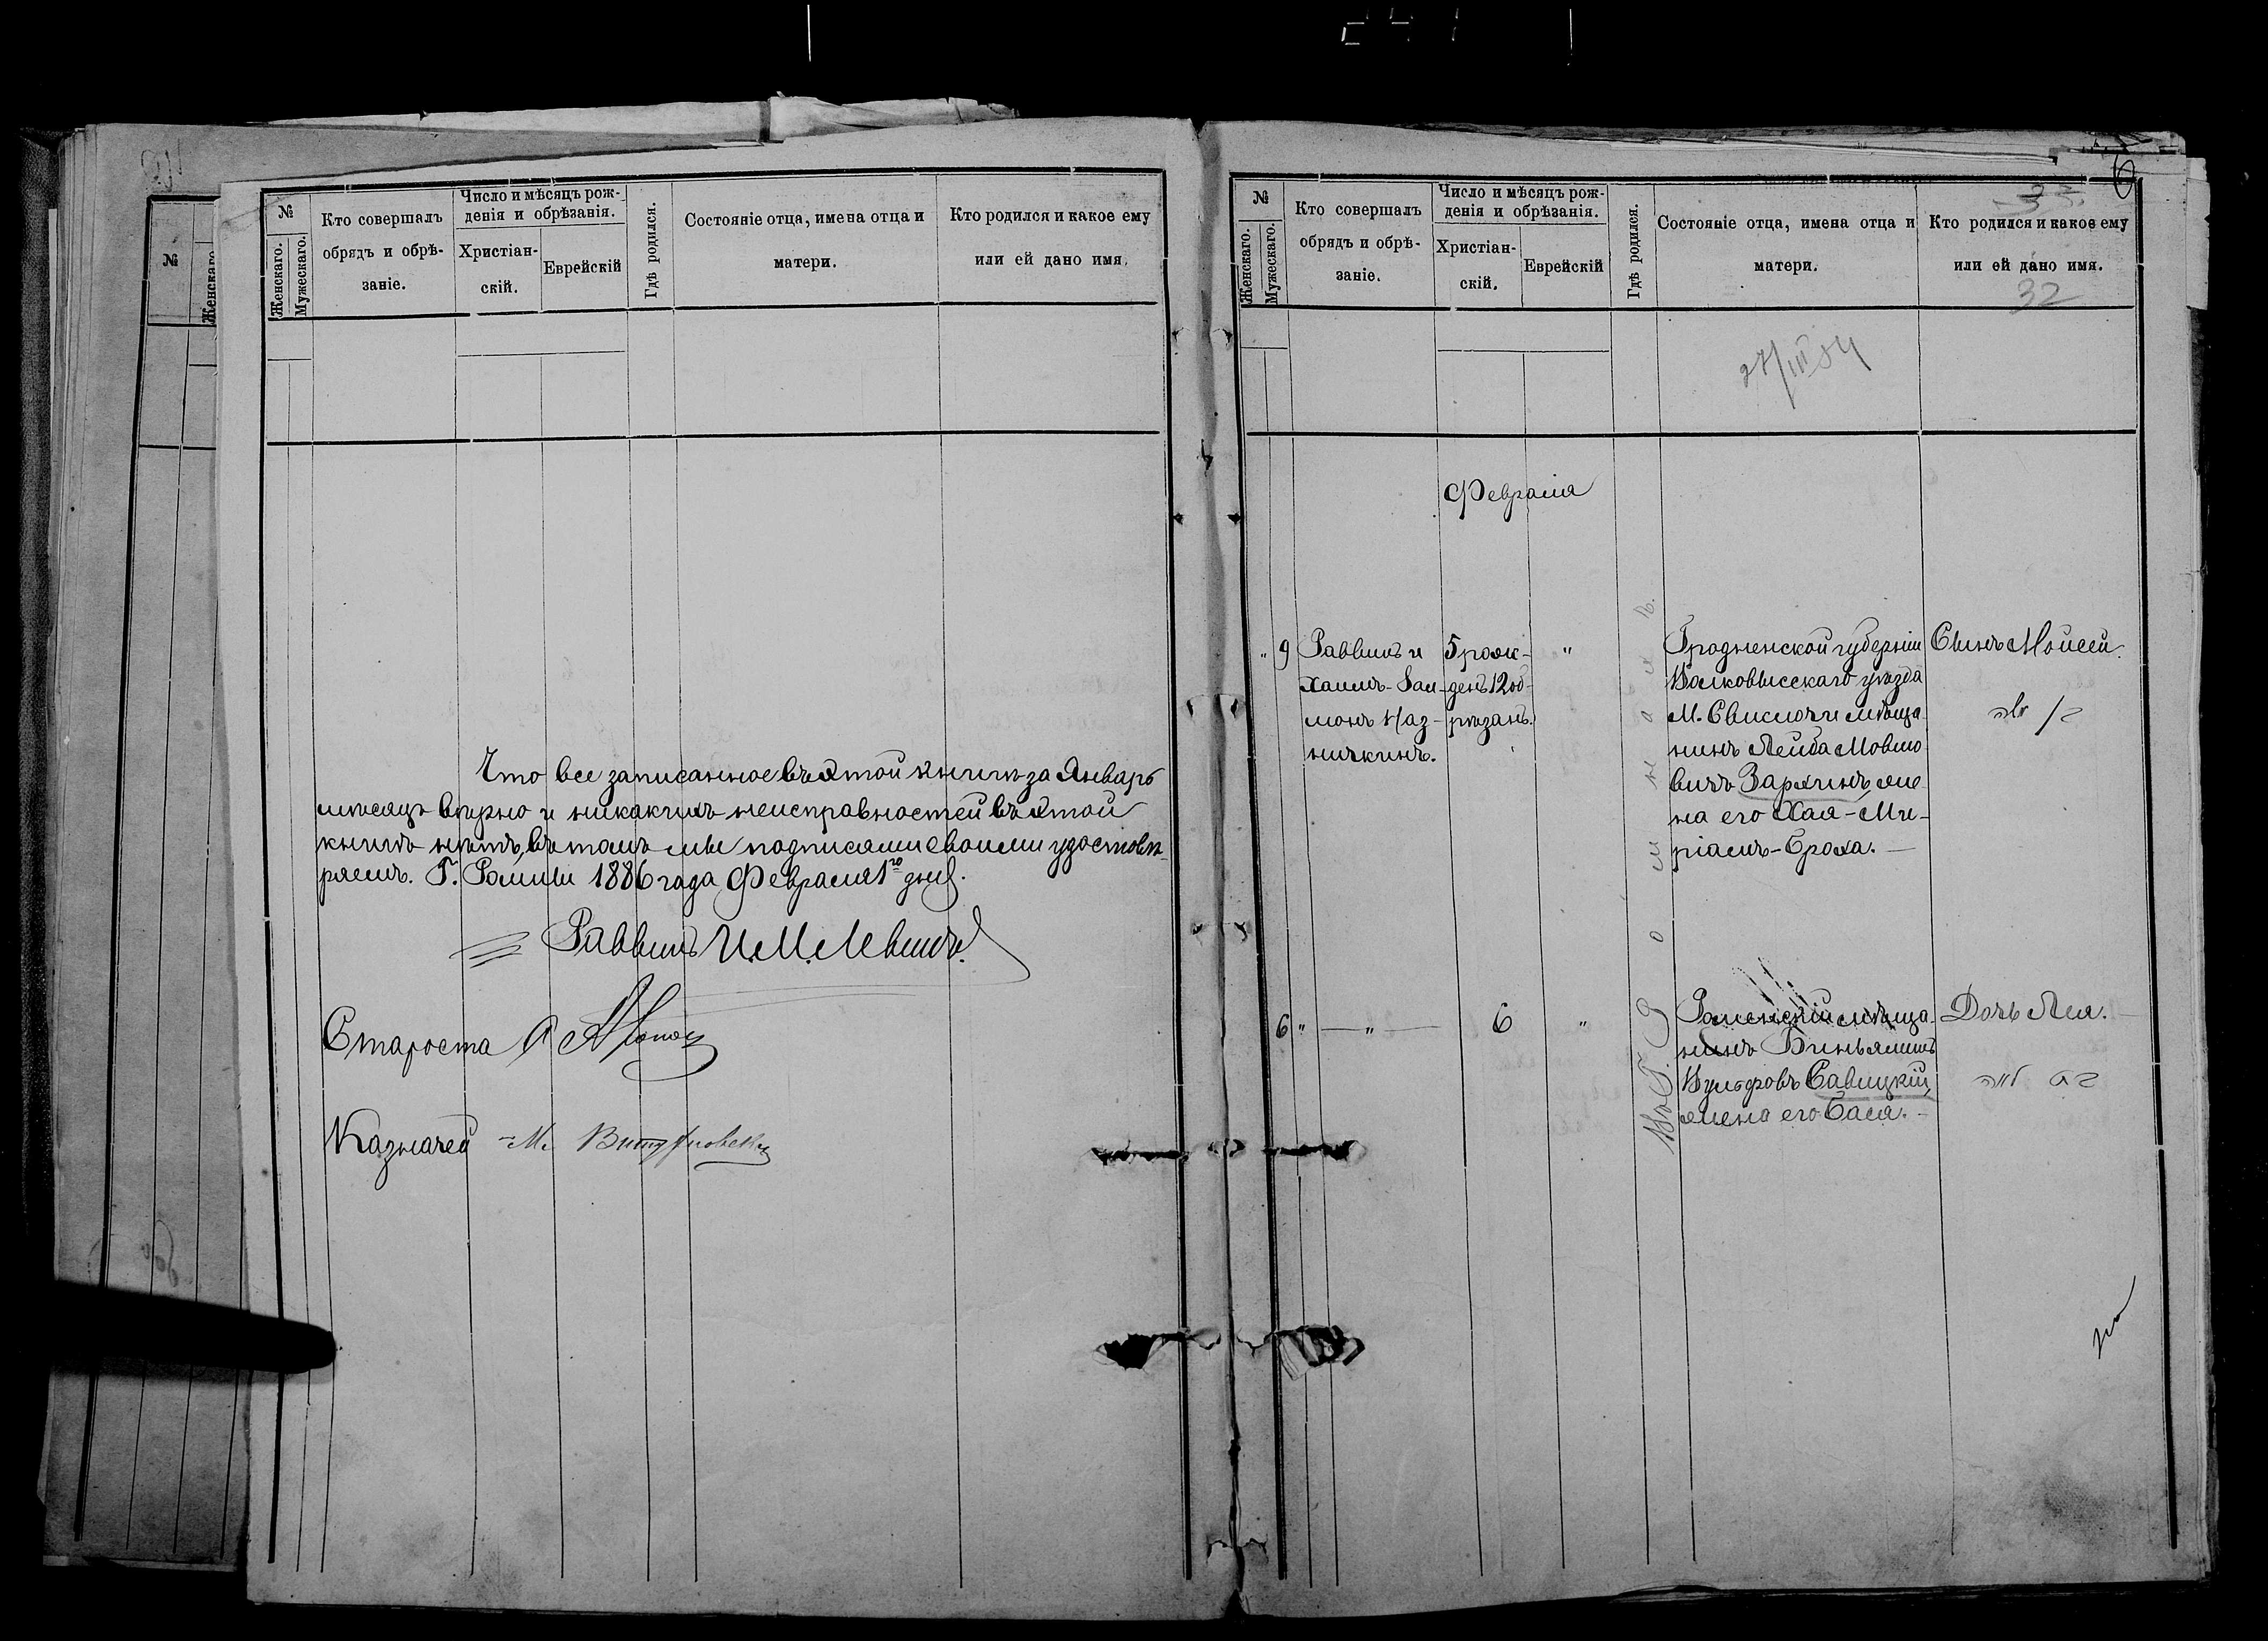 №
Женскаго.
Мужескаго.
Кто совершалъ
обрядъ и обрѣ-
заніе.
Число и мѣсяцъ рож-
денія и обрѣзанія.
Христіан-
скій.
Еврейскій
Гдѣ родился.
Состояніе отца, имена отца и
матери.
Кто родился и какое ему
или ей дано имя.
№
Женскаго
Что все записанное въ этой книгѣ за Январь
мѣсяцъ вѣрно и никакихъ неисправностей въ этой
книгѣ нѣтъ, въ томъ мы подписями своими удостовѣ-
ряемъ. Г. Ромны 1886 года Февраля 1го дня.
Раввинъ И. М. Левинъ
Староста А
Казначей М.
6
33.
№
Женскаго.
Мужескаго.
Кто совершалъ
обрядъ и обрѣ-
заніе.
Число и мѣсяцъ рож-
денія и обрѣзанія.
Христіан-
скій.
Еврейскій
Гдѣ родился.
Состояніе отца, имена отца и
матери.
Кто родился и какое ему
или ей дано имя.
32
27/III 84
Февраля
" 9
Раввинъ и
Хаимъ-Зал-
монъ Каз-
ничкинъ.
5 рож-
денъ 12 об-
рѣзанъ.
"
Въ Г. Ромнахъ.
Гродненской губерніи
Волковысскаго уѣзда
М. Свислочи мѣща-
нинъ Лейба Мовшо-
вичъ Зархинъ, же-
на его Хая-Ми-
ріамъ-Броха.
Сынъ Мойсей.
6 "
"
6
"
Роменскій мѣща-
нинъ Биньяминъ
Вульфовъ Савицкій,
жена его Бася.
Дочь Лея.